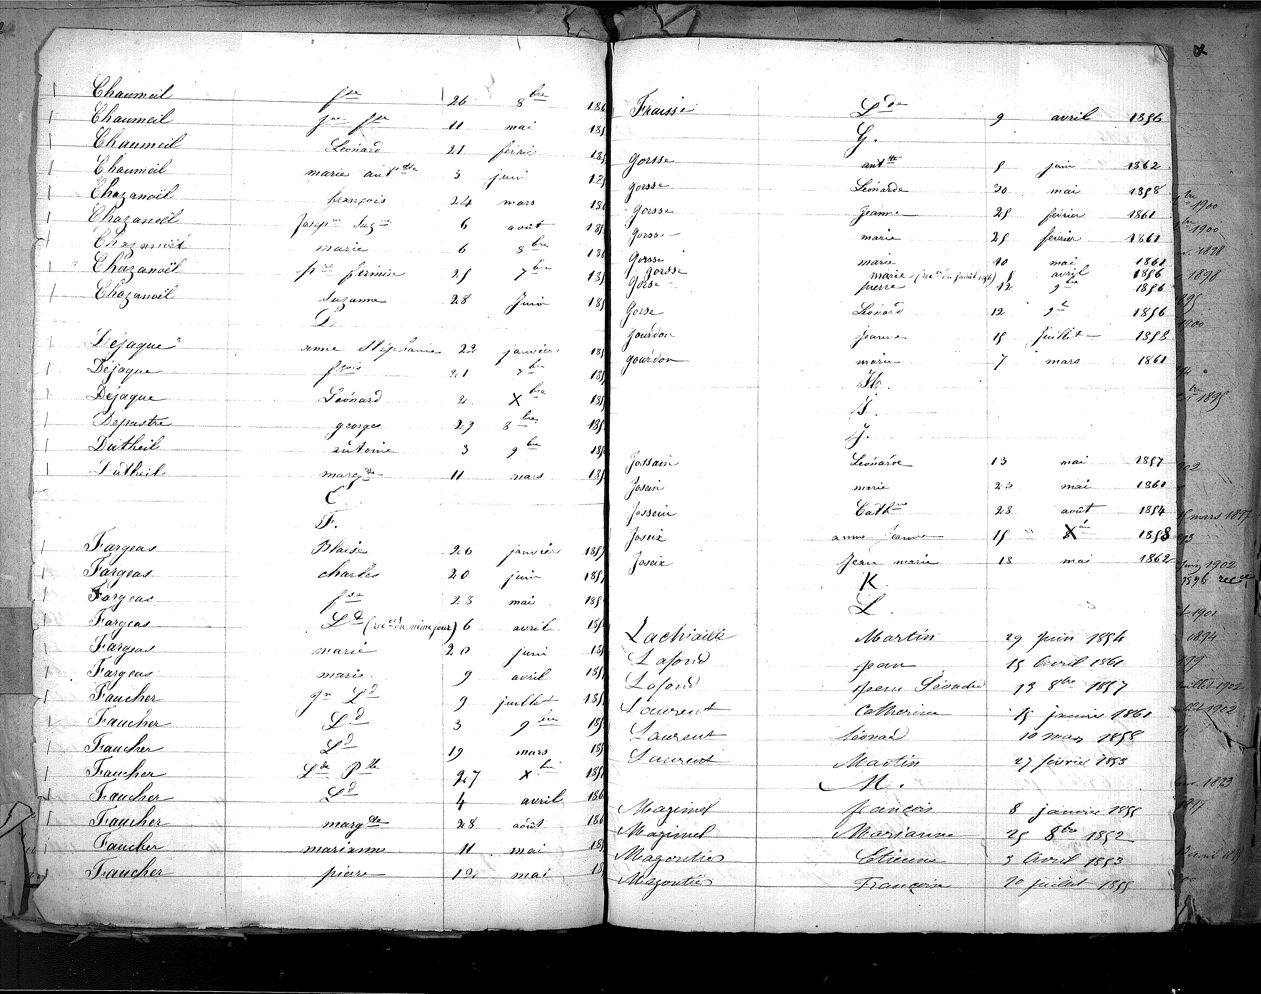 Chaumeil fse 26 8bre 186
Chaumeil jne fse 11 mai 185
Chaumeil Léonard 21 févrie 185
Chaumeil marie antoinette 3 juin 185
Chazanoël françois 24 mars 186
Chazanoël 6 août 185
Chazanoël marie 6 8bre 186
Chazanoël pre firmin 25 7bre 185
Chazanoël suzanne 28 Juin 185
D.
Déjaque anne Stéphanie 22 janvier 185
Dejaque fçois 21 7bre 185
Dejaque Léonard 2 Xbre 185
Depastre georges 29 8bre 185
Dutheil antoine 3 9bre 185
Dutheil margte 11 mars 185
F.
Fargeas Blaise 26 janvier 185
Fargeas charles 20 juin 185
Fargeas fse 23 mai 185
Fargeas Ld (né du même jour) 6 avril 185
Fargeas marie 20 juin 185
Fargeas marie 9 avril 185
Faucher jn Ld 9 juillet 185
Faucher Ld 3 9bre 185
Faucher Ld 19 mars 185
Faucher Lde 27 Xbre 185
Faucher Ld 4 avril 186
Faucher margte 28 août 186
Faucher marianne 11 mai 185
Faucher piere 12 mai 18
Fraisse Lde 9 avril 1856
G.
Gorsse antte 5 juin 1862
gorsse Léonarde 30 mai 1858
gorsse jeanne 25 février 1861
Gorsse marie 25 février 1861
Gorsse marie 10 mai 1861
gorsse marie avril 1856
gorse pierre 12 9bre 1856
Gorse Léonard 12 9b 1856
gourdon jeanne 15 juillet 1858
gourdon marie 7 mars 1861
H.
I.
J.
Jossain Léonarde 13 mai 1857
Josein marie 23 mai 1861
Jossein Cathne 28 août 1854
Joseix anne Jeanne 15 Xe 1858
Joseix Jean marie 18 mai 1862
K
L.
Lachiaille Martin 29 Juin 1854
Lafond jean 15 Avril 1861
Lafond pierre Léonard 13 8bre 1857
Laurent Catherine 15 janvier 1861
Laurent Léonard 10 mars 1858
Laurent Martin 27 février 1853
M.
Mazimel françois 8 janvier 1855
Mazimel Marianne 25 8bre 1852
Magontier Etienne 3 Avril 1853
Magontier François 20 juillet 1855
1900
1900
1898
1898
1895
1900
1895
1902
mars 1897
1902
1896
1901
1894
juillet 1902
1902